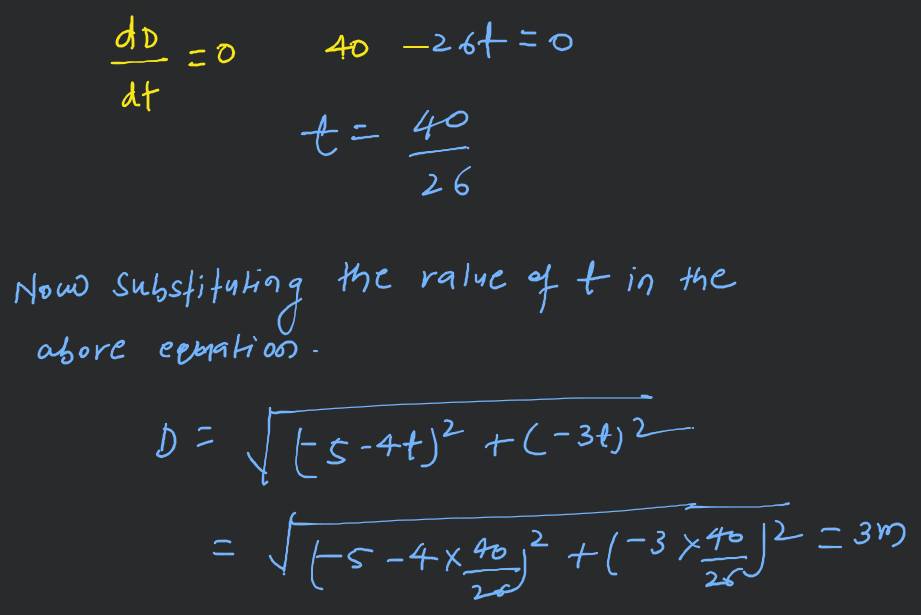 dD/dt = 0 40 - 26t = 0
t = 40/26
Now substituting the value of t in the
above equation.
D = √((-5-4t)² + (-3t)²
= √((-5-4×40/26)² + (-3×40/26)² = 3m